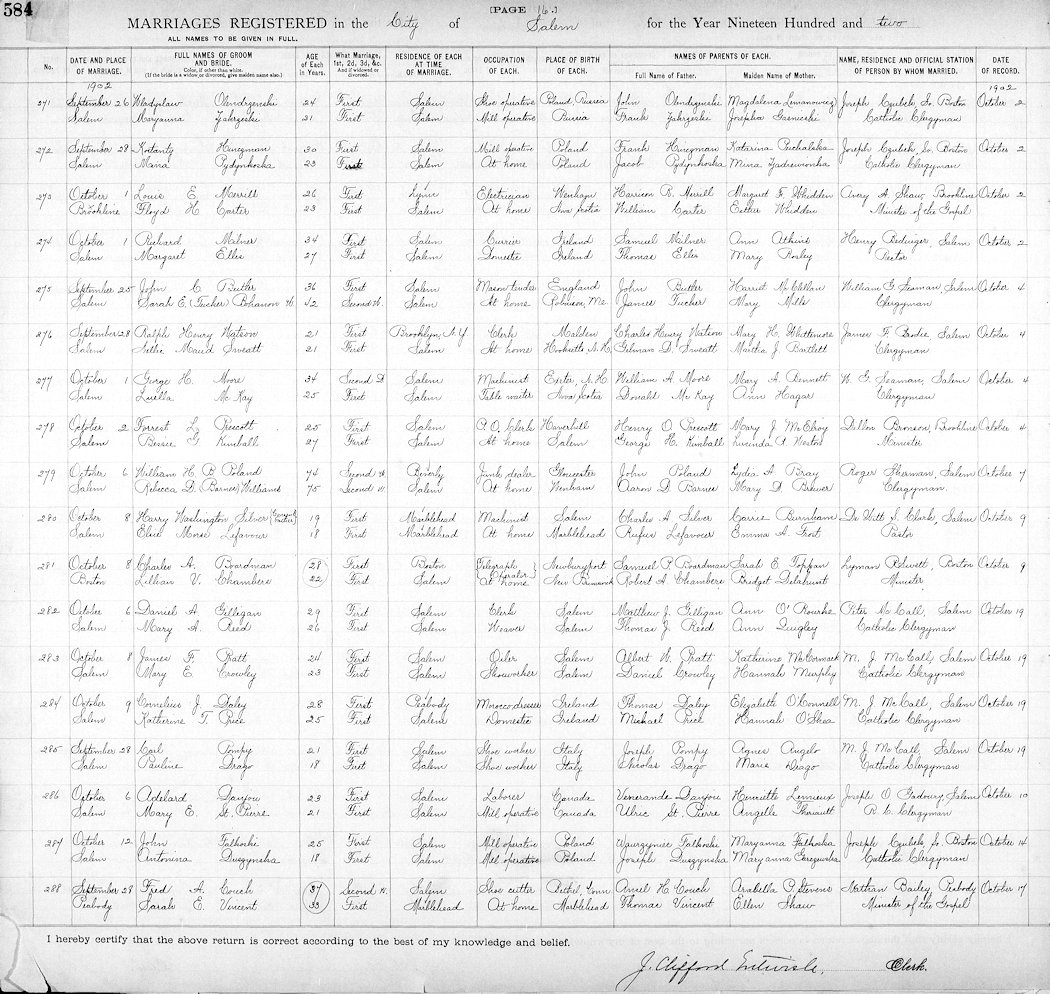 584
[PAGE 16.]
MARRIAGES REGISTERED in the City of Salem for the Year Nineteen Hundred and two
ALL NAMES TO BE GIVEN IN FULL.
No. DATE AND PLACE OF MARRIAGE. FULL NAMES OF GROOM AND BRIDE. Color, if other than white. (If the bride is a widow or divorced, give maiden name also.) AGE of Each in Years. What Marriage, 1st, 2d, 3d, &c. And if widowed or divorced. RESIDENCE OF EACH AT TIME OF MARRIAGE. OCCUPATION OF EACH. PLACE OF BIRTH OF EACH. NAMES OF PARENTS OF EACH. Full Name of Father. Maiden Name of Mother. NAME, RESIDENCE AND OFFICIAL STATION OF PERSON BY WHOM MARRIED. DATE OF RECORD.
1902 1902
271 September 26 Wladyslaw 24 First Salem Shoe operative Poland, Russia John Magdalena Joseph Czubek, So. Boston October 2
Salem Maryanna 21 First Salem Mill operative Russia Frank Josephia Catholic Clergyman
272 September 28 Kostanty 30 First Salem Mill operative Poland Frank Katarina Joseph Czubek, So. Boston October 2
Salem 23 First Salem At home Poland Jacob Catholic Clergyman
273 October 1 Louis E. Merrill 26 First Lynn Electrician Wenham Harrison R. Merrill Margaret F. Whidden Avery A. Shaw, Brookline October 2
Brookline Floyd H. Carter 23 First Salem At home Nova Scotia William Carter Esther Whidden Minister of the Gospel
274 October 1 Richard Milner 34 First Salem Currier Ireland Samuel Milner Ann Atkins Henry Bedinger, Salem October 2
Salem Margaret Elles 27 First Salem Domestic Ireland Thomas Elles Mary Rector
275 September 25 John C. Butler 36 First Salem Mason tender England John Butler Harriet McClellan William G. Seaman, Salem October 4
Salem Sarah E. (Tucker) Bohanon W. 42 Second W. Salem At home Robinson, Me. James Tucker Mary Mills Clergyman
276 September 28 Ralph Henry Watson 21 First Brooklyn, N.Y. Clerk Malden Charles Henry Watson Mary H. Whittemore James F. Brodie, Salem October 4
Salem Maud Sweatt 21 First Salem At home Hooksett, N.H. Gilman D. Sweatt Martha J. Bartlett Clergyman
277 October 1 George H. Moore 34 Second D. Salem Machinist Exeter, N.H. William A. Moore Mary A. Bennett W. G. Seaman, Salem October 4
Salem Luella McKay 25 First Salem Table waiter Nova Scotia Donald McKay Ann Hagar Clergyman
278 October 2 Forrest L. Prescott 25 First Salem P.O. Clerk Haverhill Henry O. Prescott Mary J. McElroy Dillon Bronson, Brookline October 4
Salem Bessie G. Kimball 27 First Salem At home Salem George H. Kimball Lucinda A. Weston Minister
279 October 6 William H. B. Poland 74 Second W. Beverly Junk dealer Gloucester John Poland Lydia A. Bray Roger Sherman, Salem October 7
Salem Rebecca D. (Barnes) Williams 75 Second W. Salem At home Wenham Aaron D. Barnes Mary D. Brewer Clergyman
280 October 8 Harry Washington Silver 19 First Marblehead Machinist Salem Charles A. Silver Carrie Burnham De Witt S. Clark, Salem October 9
Salem Elsie Morse Lefavour 18 First Marblehead At home Marblehead Rufus Lefavour Emma A. Frost Pastor
281 October 8 Charles A. Boardman 28 First Boston Telegraph Operator Newburyport Samuel P. Boardman Sarah E. Toppan Lyman Boston October 9
Boston Lillian V. Chambers 22 First Salem At home New Brunswick Robert A. Chambers Bridget Delahunt Minister
282 October 6 Daniel A. Gilligan 29 First Salem Clerk Salem Matthew J. Gilligan Ann O'Rourke Peter McCall, Salem October 19
Salem Mary A. Reed 26 First Salem Weaver Salem Thomas J. Reed Ann Quigley Catholic Clergyman
283 October 8 James F. Pratt 24 First Salem Oiler Salem Albert W. Pratt Katherine McCormack M. J. McCall, Salem October 19
Salem Mary E. Crowley 23 First Salem Shoeworker Salem Daniel Crowley Hannah Murphy Catholic Clergyman
284 October 9 Cornelius J. Daley 28 First Peabody Morocco dresser Ireland Thomas Daley Elizabeth O'Connell M. J. McCall, Salem October 19
Salem Katherine T. Price 25 First Salem Domestic Ireland Michael Price Hannah O'Shea Catholic Clergyman
285 September 28 Carl Pompy 21 First Salem Shoe worker Italy Joseph Pompy Agnes Angelo M. J. McCall, Salem October 19
Salem Pauline Drago 18 First Salem Shoe worker Italy Nicolas Drago Marie Drago Catholic Clergyman
286 October 6 Adelard Danjou 23 First Salem Laborer Canada Venerande Danjou Henriette Lemieux Joseph O. Gadoury, Salem October 10
Salem Mary E. St. Pierre 21 First Salem Mill operative Canada Ulric St. Pierre Angelle Theriault R. C. Clergyman
287 October 12 John Falkoski 25 First Salem Mill operative Poland Falkoski Maryanna Falkoska Joseph Czubek, So. Boston October 14
Salem Antonina Duszynska 18 First Salem Mill operative Poland Joseph Duszynska Maryanna Catholic Clergyman
288 September 28 Fred A. Couch 37 Second W. Salem Shoe cutter Bethel, Conn Amiel H. Couch Arabella P. Stevens Nathan Bailey, Peabody October 17
Peabody Sarah E. Vincent 33 First Marblehead At home Marblehead Thomas Vincent Ellen Shaw Minister of the Gospel
I hereby certify that the above return is correct according to the best of my knowledge and belief.
J. Clifford Entwisle, Clerk.